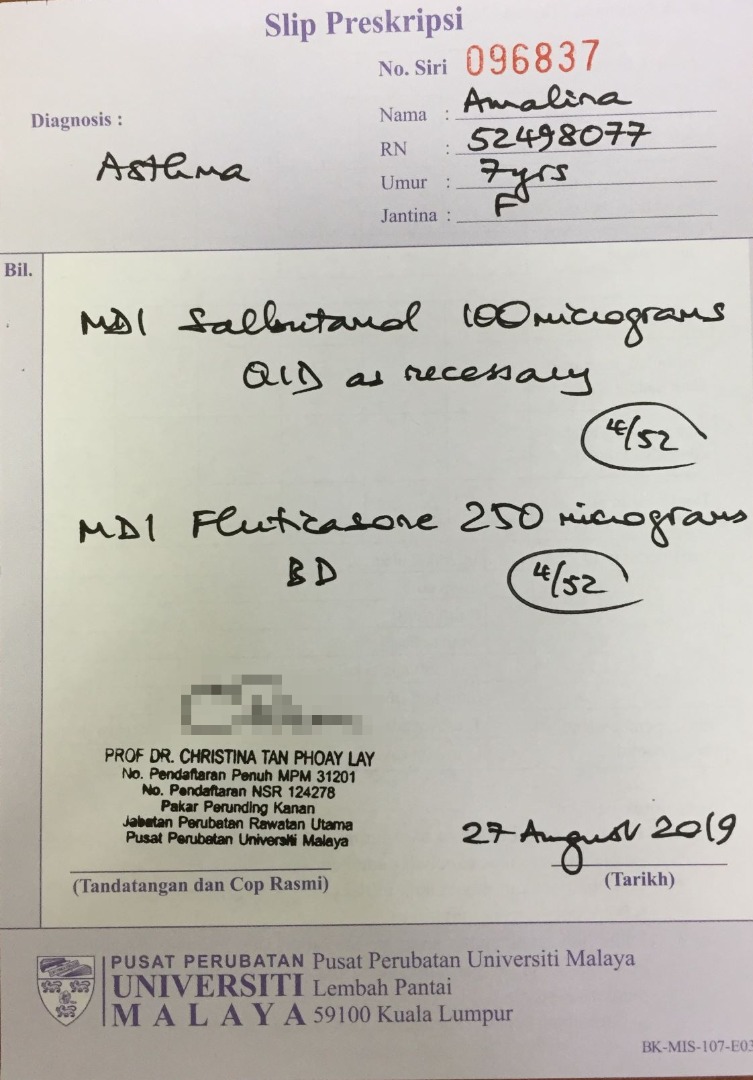 Slip Preskripsi
No. Siri 096837
Diagnosis :
Asthma
Nama : Amalina
RN : 52498077
Umur : 7yrs
Jantina : F
Bil.
MDI Salbutamol 100 micrograms
QID as necessary
4/52
MDI Fluticasone 250 micrograms
BD
4/52
PROF DR. CHRISTINA TAN PHOAY LAY
No. Pendaftaran Penuh MPM 31201
No. Pendaftaran NSR 124278
Pakar Perunding Kanan
Jabatan Perubatan Rawatan Utama
Pusat Perubatan Universiti Malaya
(Tandatangan dan Cop Rasmi)
27 August 2019
(Tarikh)
PUSAT PERUBATAN
UNIVERSITI
MALAYA
Pusat Perubatan Universiti Malaya
Lembah Pantai
59100 Kuala Lumpur
BK-MIS-107-E03